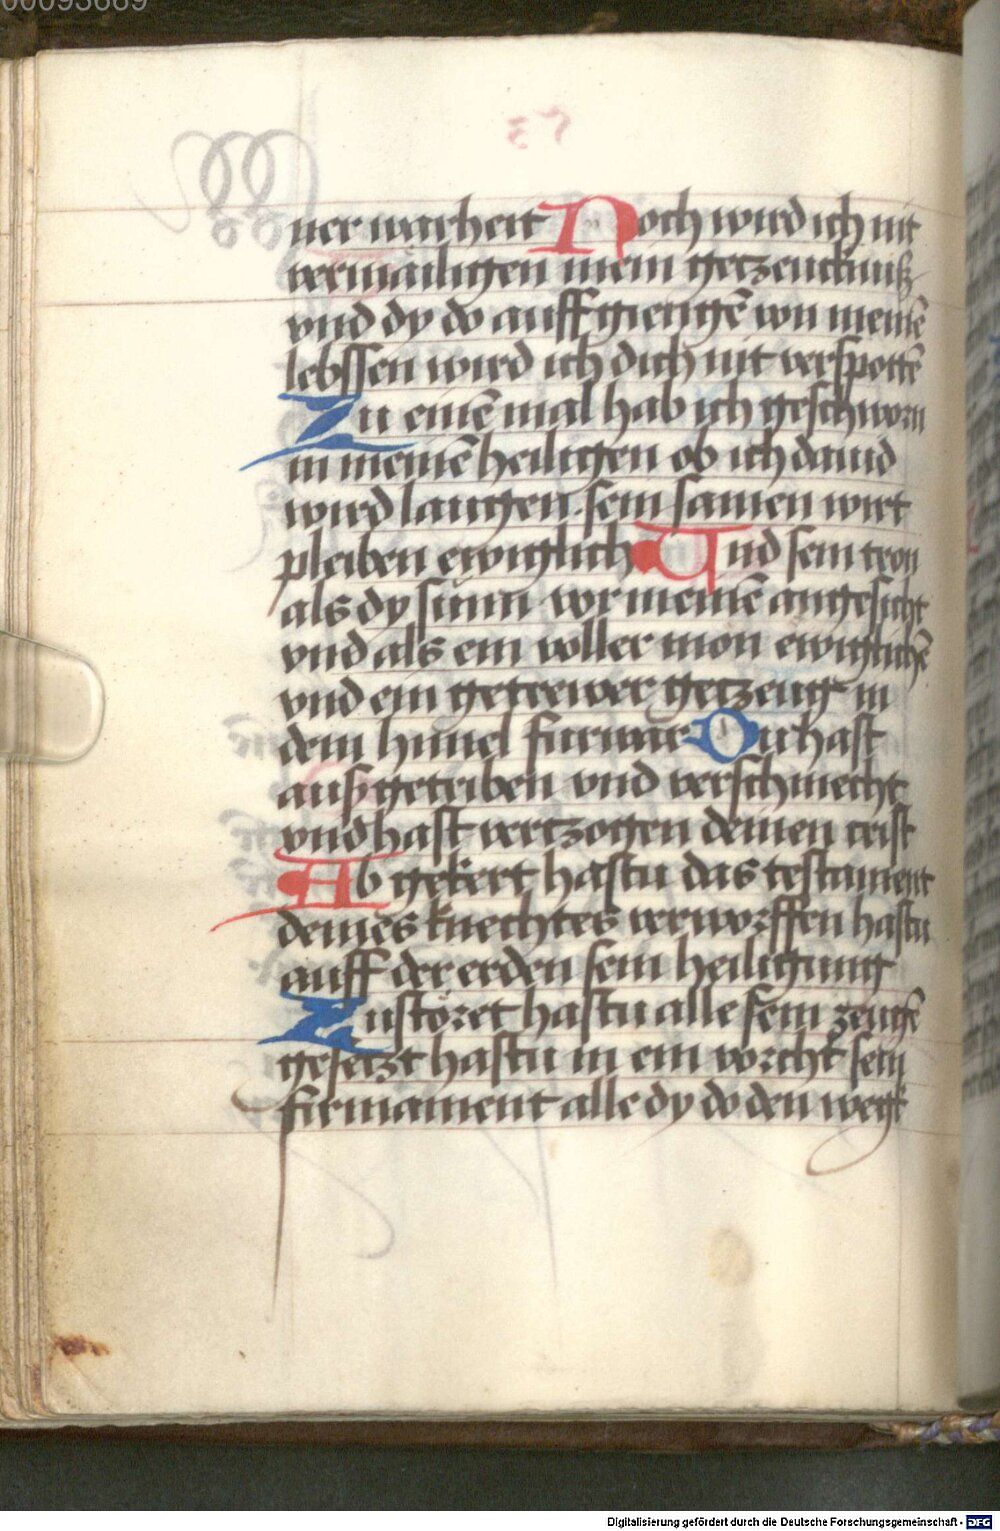 00093689
53
ner warheit Noch wird ich nit
vermailigen mein getzeucknuß
vnd dy do auff giengē von meinē
lebssen wird ich dich nit verspottē
Zu einē mal hab ich geschworn
in meinē heiligen ob ich dauid
wird laugen. sein samen wirt
pleiben ewiglich Und sein tron
als dy sunn vor meinē angesicht
vnd als ein voller mon ewiglichē
vnd ein getrewer getzeug in
dem himel furwar Du hast
ausgetriben vnd verschmecht
vnd hast vertzogen deinen crist
Ab gekert hastu das testament
deines knechtes verworffen hastu
auff der erden sein heiligung
Zustöret hastu alle sein zeugē
gesetzt hastu in ein vorcht sein
firmament alle dy do den weg
Digitalisierung gefördert durch die Deutsche Forschungsgemeinschaft - DFG